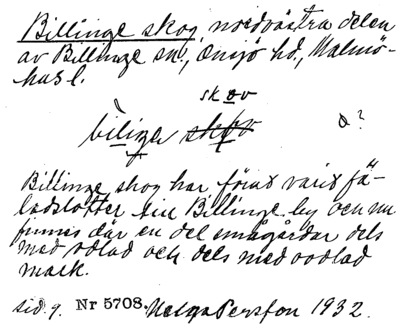 Billinge skog, nordvästra delen
av Billinge sn, Onsjö hd, Malmö-
hus l.
skov
bìliŋa skov a?
Billinge skog har förut varit fä-
ladslotter till Billinge by och nu
finnes där en del smågårdar dels
med odlad och dels med oodlad
mark.
sid. 9. Nr 5708. Helga Persson 1932.